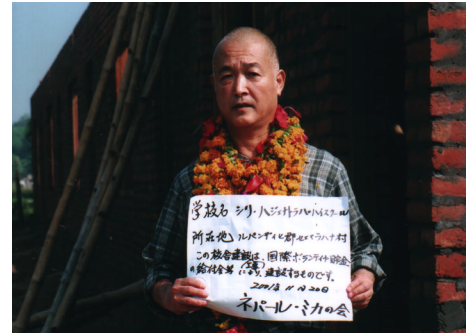 学校名 シリ・ハジェナトラハイスクール
所在地 ルパンデヒ郡セマララハナ村
この校舎建設は、国際ボランティア貯金
の給付金等により、建設するものです。
2001年11月20日
ネパール・ミカの会